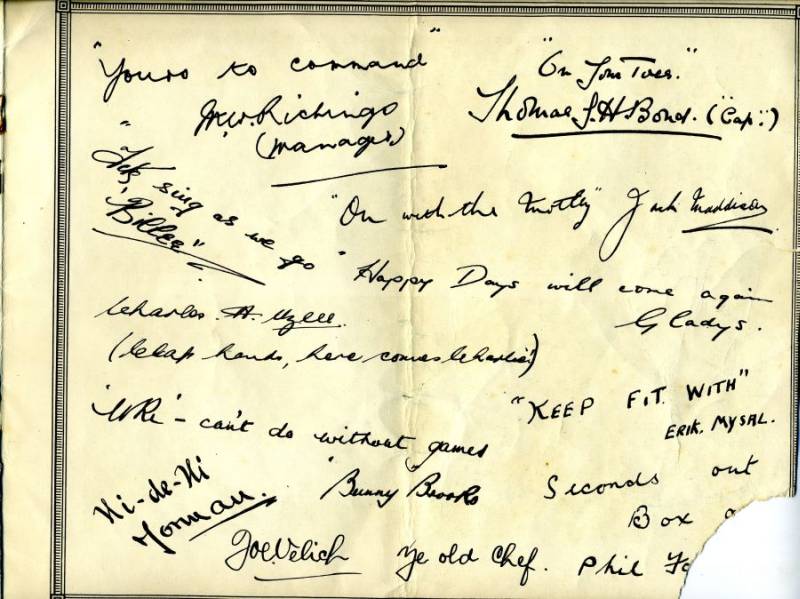 "Yours to command"
(Manager)
"On Your Toes."
Thomas J. H. Bond. ("Cap".)
"Let's sing as we go"
"Billee"
"On with the Motley" Jack Maddison
"Happy Days will come again
Gladys.
Charles. H.
(Clap hands, here comes Charlie!)
can't do without games
Bunny Brooks
"KEEP FIT WITH"
ERIK. MYSAL.
Hi-de-Hi
Norman.
Seconds out
Box
Joe Velich Ye old Chef. Phil